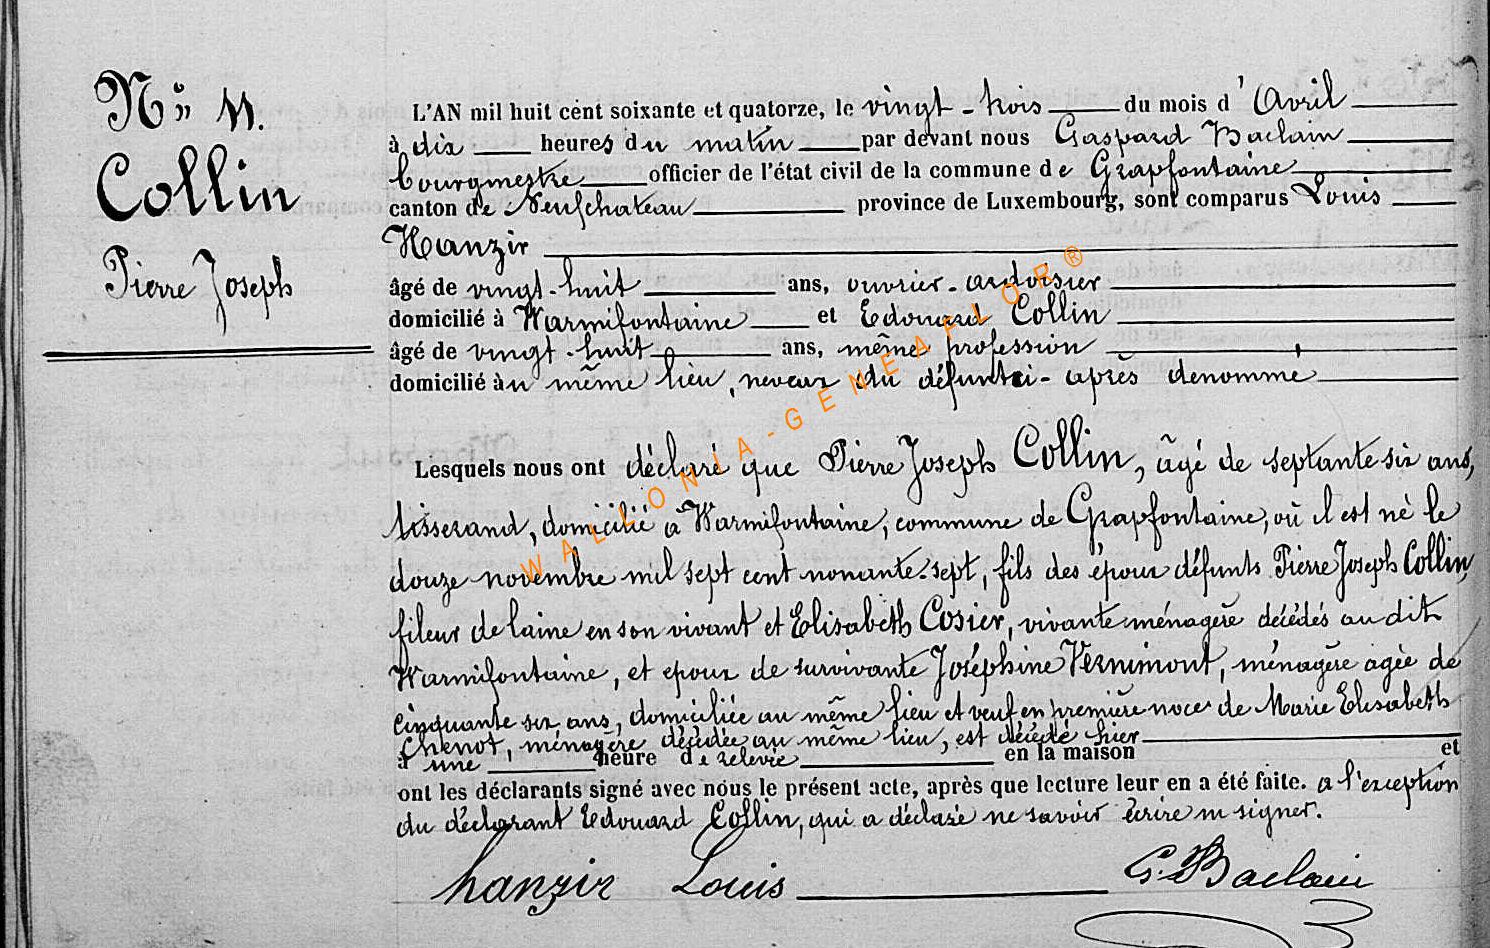 N° 11.
Collin
Pierre Joseph
L'AN mil huit cent soixante et quatorze, le vingt-trois du mois d'Avril
à dix heures du matin par devant nous Gaspard Baclain
bourgmestre officier de l'état civil de la commune de Grapfontaine
canton de Neufchateau province de Luxembourg, sont comparus Louis
Hanzir
âgé de vingt-huit ans, ouvrier-ardoisier
domicilié à Warmifontaine et Edouard Collin
âgé de vingt-huit ans, même profession
domicilié au même lieu, neveux du défunt ci-après dénommé
Lesquels nous ont déclaré que Pierre Joseph Collin, âgé de septante six ans,
tisserand, domicilié à Warmifontaine, commune de Grapfontaine, où il est né le
douze novembre mil sept cent nonante-sept, fils des époux défunts Pierre Joseph Collin,
fileur de laine en son vivant et Elisabeth Cosier, vivante ménagère décédés au dit
Warmifontaine, et époux de survivante Joséphine Vernimont, ménagère agée de
cinquante six ans, domiciliée au même lieu et veuf en première noce de Marie Elisabeth
Chenot, ménagère décédée au même lieu, est décédé hier
à une heure de relevée en la maison et
ont les déclarants signé avec nous le présent acte, après que lecture leur en a été faite. a l'exception
du déclarant Edouard Collin, qui a déclaré ne savoir écrire ni signer.
hanzir Louis G. Baclain
WALLONIA-GENEAFLOR®